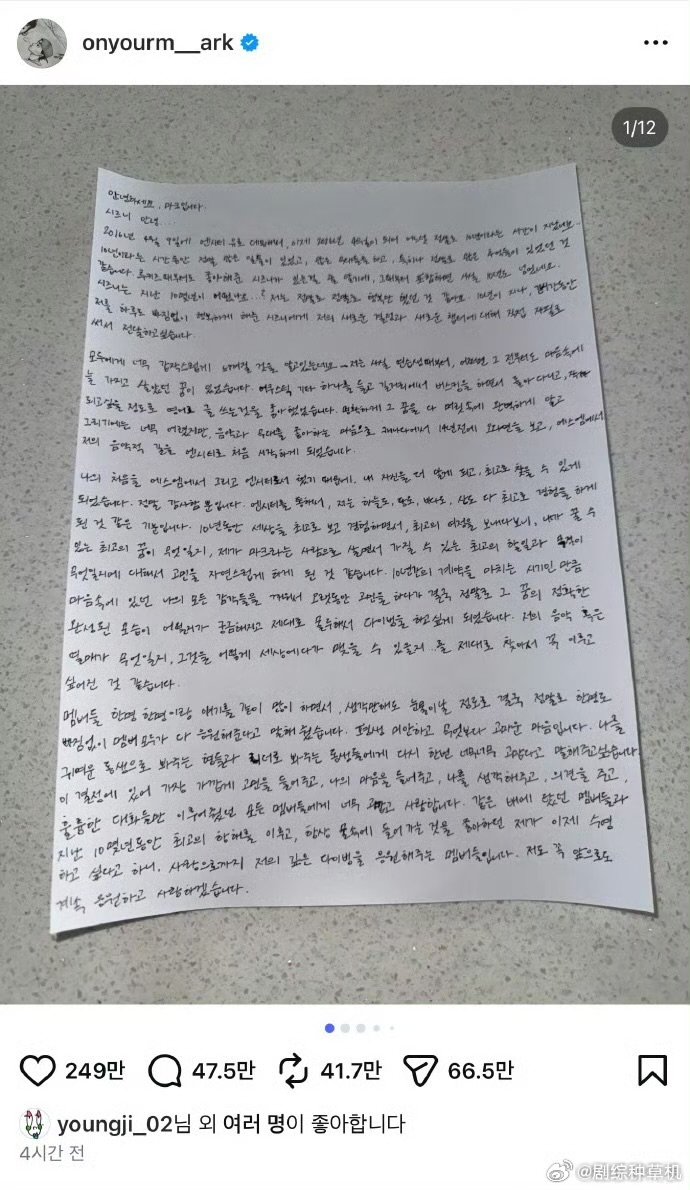 onyourm__ark
1/12
안녕하세요, 마크입니다.
시즈니 안녕...
2016년 4월 9일에 엔시티 유로 데뷔해서, 이제 2026년 4월이 되어 어느덧 정말로 10년이라는 시간이 지났네요.
10년이라는 시간동안 정말 많은 일들이 있었고, 많은 무대들을 하고, 특히나 정말로 많은 추억들이 있었던 것
같습니다. 루키즈 때부터도 좋아해준 시즈니가 있는걸 잘 알기에, 그때부터 포함하면 사실 10년도 넘었네요.
시즈니는 지난 10몇년이 어땠나요..? 저는 정말로 정말로 행복만 했던 것 같아요. 10년이 지나,
저를 하루도 빠짐없이 행복하게 해준 시즈니에게 저의 새로운 결심과 새로운 챕터에 대해 직접 자필로
써서 전달하고싶습니다.
모두에게 너무 갑작스럽게 느껴질 것을 알고있는데요.. 저는 사실 연습생때부터, 어쩌면 그 전부터도 마음속에
늘 가지고 살았던 꿈이 있었습니다. 어쿠스틱 기타 하나를 들고 길거리에서 버스킹을 하면서 돌아다니고, 작가
되고싶을 정도로 영어로 글 쓰는것을 좋아했었습니다. 막연하게 그 꿈을 다 머릿속에 완벽하게 알고
그리기에는 너무 어렸지만, 음악과 무대를 좋아하는 마음으로 캐나다에서 14년전에 오디션을 보고, 에스엠에서
저의 음악적 길을 엔시티로 처음 시작하게 되었습니다.
나의 처음을 에스엠에서 그리고 엔시티로서 했기 때문에, 내 자신을 더 알게 되고, 최고로 찾을 수 있게
되었습니다. 정말 감사할 뿐입니다. 엔시티를 통해서, 저는 하늘도, 땅도, 바다도, 산도 다 최고로 경험을 하게
된 것 같은 기분입니다. 10년동안 세상을 최고로 보고 경험하면서, 최고의 여정을 보내다보니, 내가 꿀 수
있는 최고의 꿈이 무엇일지, 제가 마크라는 사람으로 살면서 가질 수 있는 최고의 할일과 목적이
무엇일지에 대해서 고민을 자연스럽게 하게 된 것 같습니다. 10년간의 계약을 마치는 시기인 만큼
마음속에 있던 나의 모든 감각들을 깨워서 오랫동안 고민을 하다가 결국 정말로 그 꿈의 정확한
완성된 모습이 어떨런가 궁금해지고 제대로 몰두해서 다이빙을 하고싶게 되었습니다. 저의 음악 혹은
열매가 무엇일지, 그것을 어떻게 세상에다가 맺을 수 있을지..를 제대로 찾아서 꼭 이루고
싶어진 것 같습니다.
멤버들 한명 한명이랑 얘기를 같이 많이 하면서, 생각만해도 눈물이날 정도로 결국 정말로 한명도
빠짐없이 멤버 모두가 다 응원해준다고 말해 줬습니다. 평생 미안하고 무엇보다 고마운 마음입니다. 나를
귀여운 동생으로 봐주는 형들과 리더로 봐주는 동생들에게 다시 한번 너무너무 고맙다고 말해주고싶습니다.
이 결정에 있어 가장 가깝게 고민을 들어주고, 나의 마음을 들어주고, 나를 생각해주고, 의견을 주고,
훌륭한 대화들만 이루어줬던 모든 멤버들에게 너무 고맙고 사랑합니다. 같은 배에 탔던 멤버들과
지난 10몇년동안 최고의 항해를 이루고, 항상 물속에 들어가는 것을 좋아하던 제가 이제 수영
하고 싶다고 하니, 사랑으로까지 저의 깊은 다이빙을 응원해주는 멤버들입니다. 저도 꼭 앞으로도
계속 응원하고 사랑하겠습니다.
249만 47.5만 41.7만 66.5만
youngji_02님 외 여러 명이 좋아합니다
4시간 전
@剧综种草机